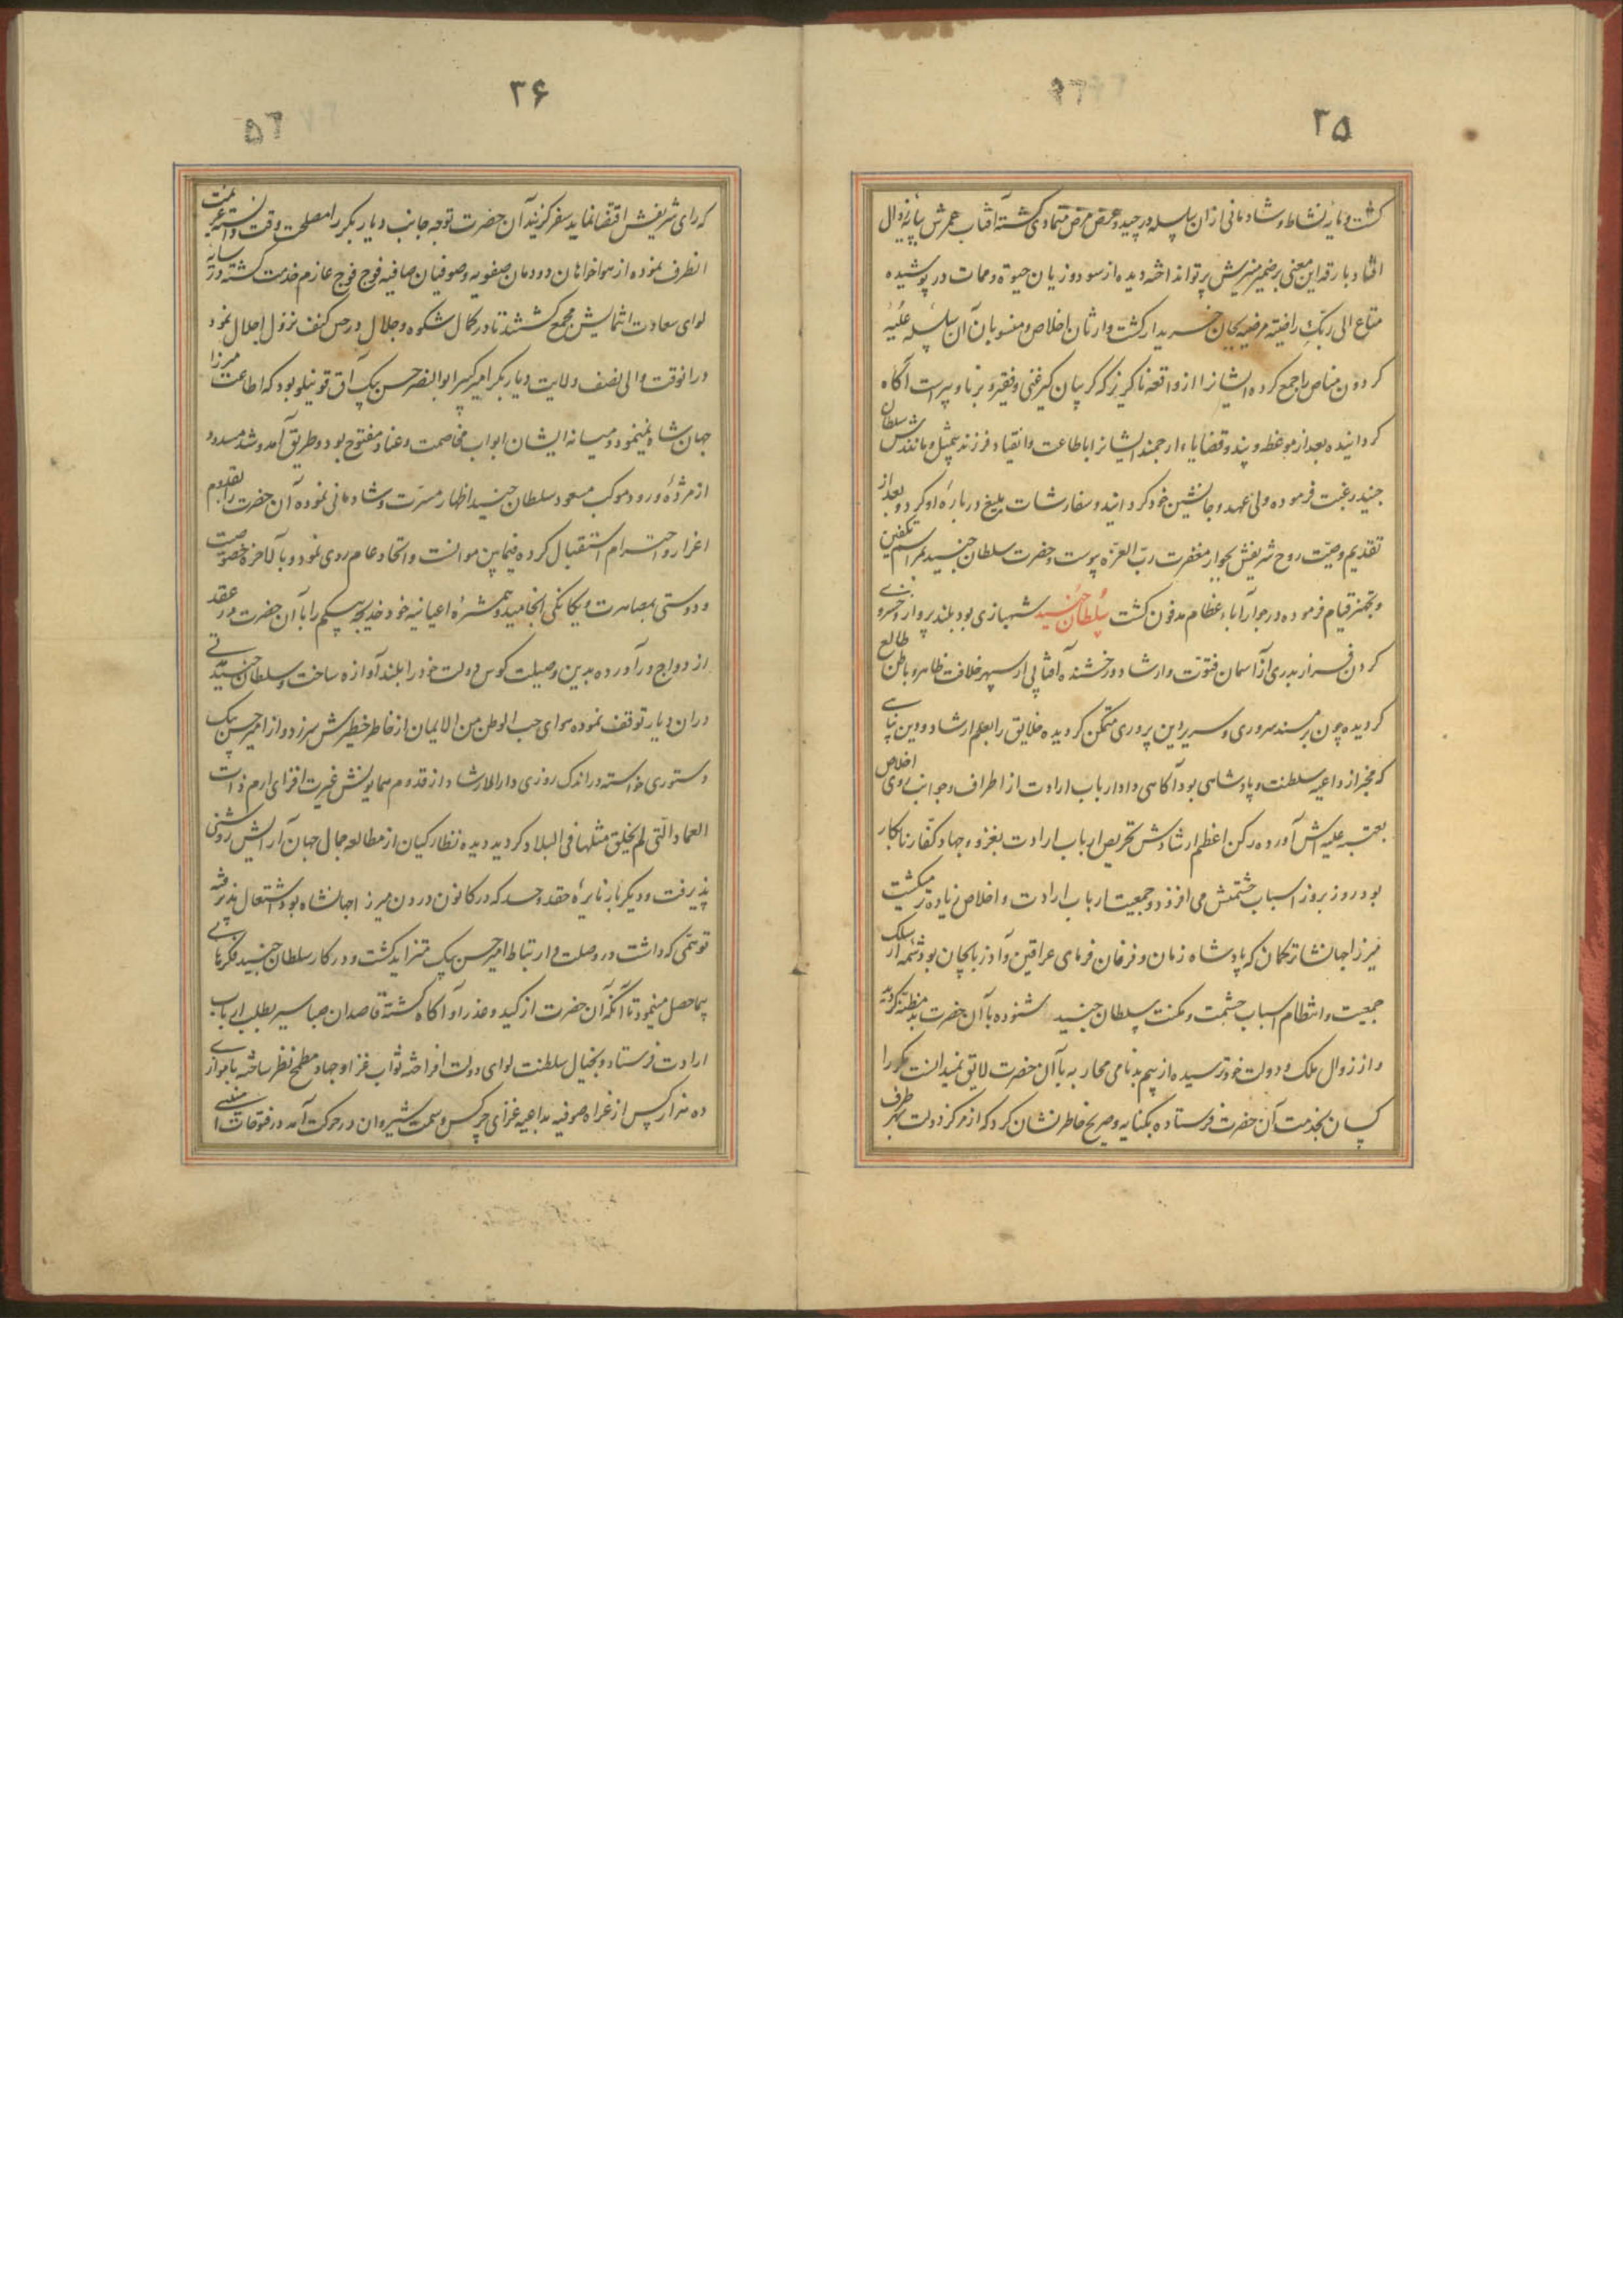 ۳۵
گشت و مایهٔ نشاط و شادمانی ازان سلسله در چید و عرض مرض متمادی گشته آفتاب عمرش بپایهٔ زوال
افتاد بارقهٔ این معنی بر ضمیر منیرش پرتو انداخته دیده از سود و زیان حیوة و ممات در پوشیده
متاع الی ربک راضیة مرضیه بجان خریدار گشت وارثان اخلاص و منسوبان آن سلسلهٔ علیهٔ
کردون مناص را جمع کرده ایشانرا از واقعه ناگزیر که گریبان گیر غنی و فقیر و برنا و پیر است آگاه
کردانیده بعد از موعظه و پند و قضایاء ارجمند ایشانرا باطاعت و انقیاد فرزند بیمثل و مانندش سلطان
جنید رغبت فرموده ولی عهد و جانشین خود کردانید و سفارشات بلیغ در بارهٔ او کرد و بعد از
تقدیم وصیت روح شریفش بجوار مغفرت رب العزه پیوست و حضرت سلطان جنید بمراسم تکفین
و تجهیز قیام فرموده در جوار آباء عظام مدفون گشت سلطان جنید شهبازی بود بلند پرواز و خسروی
کردن فراز بدری از آسمان فتوت و ارشاد درخشنده آفتابی از سپهر خلافت ظاهر و باطن طالع
کردیده چون بر مسند سروری و سریر دین پروری متمکن کردیده خلایق را بعلم ارشاد و دین پناهی
که مخبر از داعیه سلطنت و پادشاهی بود آکاهی داد ارباب ارادت از اطراف و جوانب روی اخلاص
بعتبه علیه اش آورده رکن اعظم ارشادش تحریص ارباب ارادت بغزو و جهاد کفار نابکار
بود روز بروز اسباب حشمتش می افزود و جمعیت ارباب ارادت و اخلاص زیاده میکشت
میرزا جهانشاه ترکمان که پادشاه زمان و فرمان فرمای عراقین و آذربایجان بود شمهٔ از سلک
جمعیت و انتظام اسباب حشمت و مکنت سلطان جنید شنوده بآن حضرت بد مظنه کردید
و از زوال ملک و دولت خود ترسیده از بیم بدنامی محاربه با آن حضرت لایق نمیدانست مکررا
کسان بخدمت آن حضرت فرستاده بکنایه و صریح خاطر نشان کرد که از مرکز دولت بهر طرف
۳۶
که رای شریفش اقتضا نماید سفر کزیند آن حضرت توجه جانب دیار بکر را مصلحت وقت دانسته عزیمت
انطرف نموده از هواخواهان دودمان صفویه و صوفیان صافیه فوج فوج عازم خدمت گشته در سایهٔ
لوای سعادت انتمایش مجمع کشتند تا در کمال شکوه و جلال در حسن کیف نزول اجلال نمود
در انوقت والی نصف ولایت دیار بکر امیر کبیر ابو النصر حسن بیک آق قوینلو بود که اطاعت میرزا
جهان شاه نمینمود و میانه ایشان ابواب مخاصمت و عناد مفتوح بود و طریق آمد و شد مسدود
از مژدهٔ ورود موکب مسعود سلطان جنید اظهار مسرت و شادمانی نموده آن حضرت را بقدوم
اعزاز و احترام استقبال کرده فیمابین موانست و اتحاد عام روی نمود و بالاخره خصوصیت
و دوستی بمصاهرت و یکانکی انجامید و همشیرهٔ اعیانیه خود خدیجه بیکم را بآن حضرت در عقد
ازدواج در آورده بدین وصیلت کوس دولت خود را بلند آوازه ساخت و سلطان جنید مدتی
دران دیار توقف نموده هوای حب الوطن من الایمان از خاطر خطیرش سرزد و از امیر حسن بیک
دستوری خواسته در اندک روزی دارالارشاد از قدوم همایونش غیرت افزای ارم ذات
العماد التی لم یخلق مثلها فی البلاد کردید دیده نظارکیان از مطالعه جمال جهان آرایش روشنی
پذیرفت و دیکر بار نایرهٔ حقد و حسد که در کانون درون میرزا جهانشاه بود اشتعال پذیرفته
توهمی که داشت در وصلت و ارتباط امیر حسن بیک متزاید گشت و در کار سلطان جنید فکرهای
بیماحصل مینمود تا آنکه آن حضرت از کید و غدر او آکاه گشته قاصدان صبا سیر بطلب ارباب
ارادت فرستاد و بخیال سلطنت لوای دولت افراخته ثواب غزا و جهاد مطمح نظر ساخته با موازی
ده هزار کس از غزاه صوفیه بداعیه غزای چرکس و سمت شیروان در حرکت آمد در فتوحات